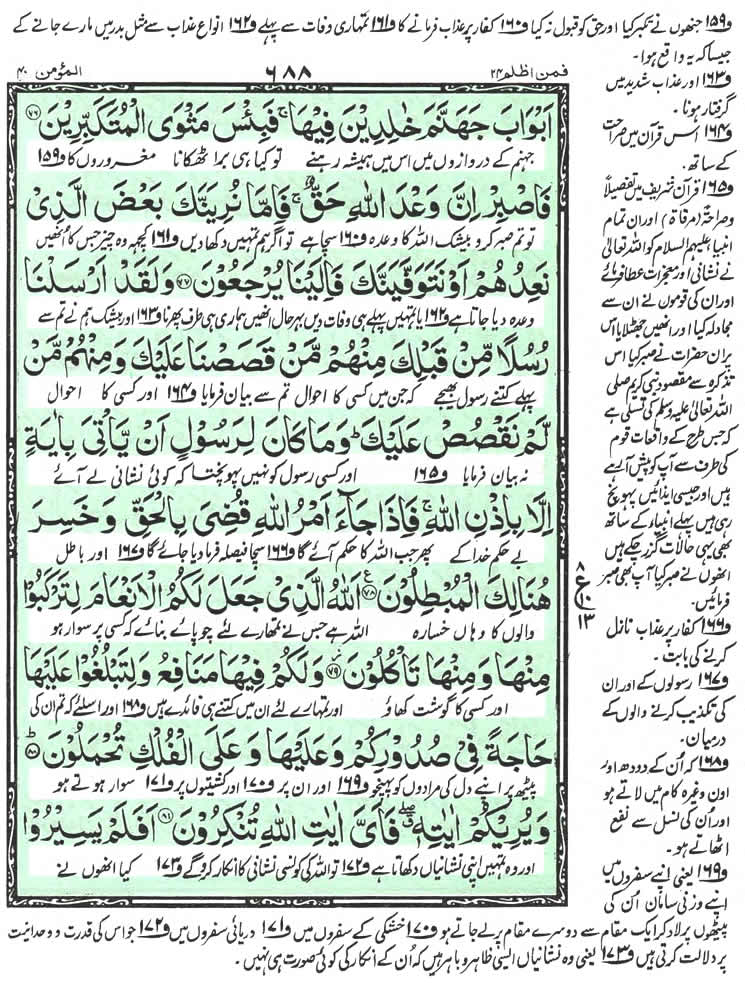 و۱۵۹ جنھوں نے تکبر کیا اور حق کو قبول نہ کیا و۱۶۰ کفار پر عذاب فرمانے کا و۱۶۱ تمہاری وفات سے پہلے و۱۶۲ انواع عذاب سے مثل بدر میں مارے جانے کے
جیسا کہ یہ واقع ہوا۔
فمن اظلم ۲۴
۶۸۸
المؤمن ۴۰
اَبْوَابَ جَهَنَّمَ خٰلِدِيْنَ فِيْهَا ۚ فَبِئْسَ مَثْوَى الْمُتَكَبِّرِيْنَ ۝۷۶
جہنم کے دروازوں میں اس میں ہمیشہ رہنے تو کیا ہی برا ٹھکانا مغروروں کا و۱۵۹
فَاصْبِرْ اِنَّ وَعْدَ اللّٰهِ حَقٌّ ۚ فَاِمَّا نُرِيَنَّكَ بَعْضَ الَّذِيْ
تو تم صبر کرو بیشک اللہ کا وعدہ و۱۶۰ سچا ہے تو اگر ہم تمہیں دکھا دیں و۱۶۱ کچھ وہ چیز جس کا انھیں
نَعِدُهُمْ اَوْ نَتَوَفَّيَنَّكَ فَاِلَيْنَا يُرْجَعُوْنَ ۝۷۷ وَلَقَدْ اَرْسَلْنَا
وعدہ دیا جاتا ہے و۱۶۲ یا تمہیں پہلے ہی وفات دیں بہرحال انھیں ہماری ہی طرف پھرنا و۱۶۳ اور بیشک ہم نے تم سے
رُسُلًا مِّنْ قَبْلِكَ مِنْهُمْ مَّنْ قَصَصْنَا عَلَيْكَ وَمِنْهُمْ مَّنْ
پہلے کتنے رسول بھیجے کہ جن میں کسی کا احوال تم سے بیان فرمایا و۱۶۴ اور کسی کا احوال
لَّمْ نَقْصُصْ عَلَيْكَ ؕ وَمَا كَانَ لِرَسُوْلٍ اَنْ يَّاْتِيَ بِاٰيَةٍ
نہ بیان فرمایا و۱۶۵ اور کسی رسول کو نہیں پہونچتا کہ کوئی نشانی لے آئے
اِلَّا بِاِذْنِ اللّٰهِ ۚ فَاِذَا جَآءَ اَمْرُ اللّٰهِ قُضِيَ بِالْحَقِّ وَخَسِرَ
بے حکم خدا کے پھر جب اللہ کا حکم آئے گا و۱۶۶ سچا فیصلہ فرما دیا جائے گا و۱۶۷ اور باطل
هُنَالِكَ الْمُبْطِلُوْنَ ۝۷۸ اَللّٰهُ الَّذِيْ جَعَلَ لَكُمُ الْاَنْعَامَ لِتَرْكَبُوْا
والوں کا وہاں خسارہ اللہ ہے جس نے تمھارے لئے چوپائے بنائے کہ کسی پر سوار ہو
مِنْهَا وَمِنْهَا تَاْكُلُوْنَ ۝۷۹ وَلَكُمْ فِيْهَا مَنَافِعُ وَلِتَبْلُغُوْا عَلَيْهَا
اور کسی کا گوشت کھاؤ اور تمہارے لئے ان میں کتنے ہی فائدے ہیں و۱۶۸ اور اسلئے کہ تم ان کی
حَاجَةً فِيْ صُدُوْرِكُمْ وَعَلَيْهَا وَعَلَى الْفُلْكِ تُحْمَلُوْنَ ۝۸۰
پیٹھ پر اپنے دل کی مرادوں کو پہنچو و۱۶۹ اور ان پر و۱۷۰ اور کشتیوں پر و۱۷۱ سوار ہوتے ہو
وَيُرِيْكُمْ اٰيٰتِهٖ ۖ فَاَيَّ اٰيٰتِ اللّٰهِ تُنْكِرُوْنَ ۝۸۱ اَفَلَمْ يَسِيْرُوْا
اور وہ تمہیں اپنی نشانیاں دکھاتا ہے و۱۷۲ تو اللہ کی کونسی نشانی کا انکار کرو گے و۱۷۳ تو کیا انھوں نے
و۱۶۳ اور عذاب شدید میں
گرفتار ہونا۔
و۱۶۴ اس قرآن میں صراحت
کے ساتھ۔
و۱۶۵ قرآن شریف میں تفصیلاً
و صراحۃً (مرقاۃ) اور ان تمام
انبیاء علیہم السلام کو اللہ تعالیٰ
نے نشانی اور معجزات عطا فرمائے
اور ان کی قوموں نے ان سے
مجادلہ کیا اور انھیں جھٹلایا اس
پر ان حضرات نے صبر کیا اس
تذکرہ سے مقصود نبی کریم صلی
اللہ تعالیٰ علیہ وسلم کی تسلی ہے
کہ جس طرح کے واقعات قوم
کی طرف سے آپ کو پیش آ رہے
ہیں اور جیسی ایذائیں پہونچ
رہی ہیں پہلے انبیاء کے ساتھ
بھی یہی حالات گزر چکے ہیں
انھوں نے صبر کیا آپ بھی صبر
فرمائیں۔
۸
ع
۱۳
و۱۶۶ کفار پر عذاب نازل
کرنے کی بابت۔
و۱۶۷ رسولوں کے اور ان
کی تکذیب کرنے والوں کے
درمیان۔
و۱۶۸ کہ ان کے دودھ اور
اون وغیرہ کام میں لاتے ہو
اور ان کی نسل سے نفع
اٹھاتے ہو۔
و۱۶۹ یعنی اپنے سفروں میں
اپنے وزنی سامان ان کی
پیٹھوں پر لاد کر ایک مقام سے دوسرے مقام پر لے جاتے ہو و۱۷۰ خشکی کے سفروں میں و۱۷۱ دریائی سفروں میں و۱۷۲ جو اس کی قدرت و وحدانیت
پر دلالت کرتی ہیں و۱۷۳ یعنی وہ نشانیاں ایسی ظاہر و باہر ہیں کہ ان کے انکار کی کوئی صورت ہی نہیں۔